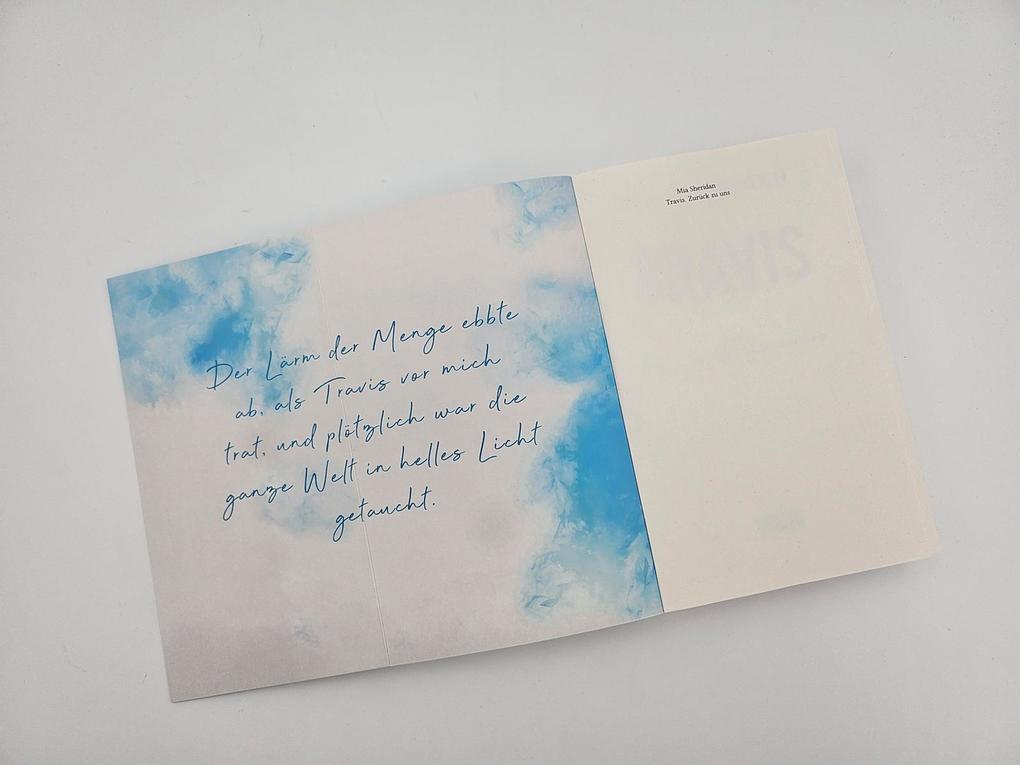 Der Lärm der Menge ebbte
ab, als Travis vor mich
trat, und plötzlich war die
ganze Welt in helles Licht
getaucht.
Mia Sheridan
Travis. Zurück zu uns